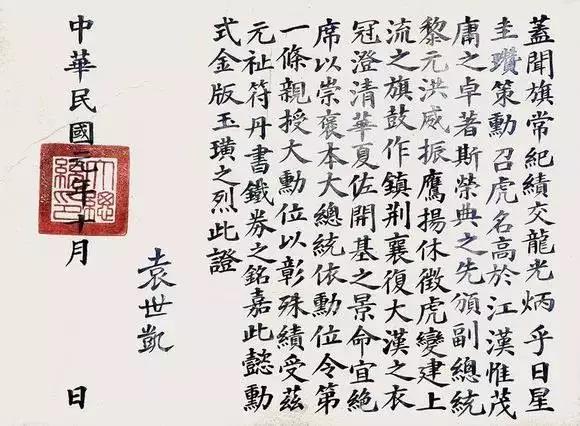 蓋聞旗常紀績交龍光炳乎日星
圭瓚策勳召虎名高於江漢惟茂
庸之卓著斯榮典之先頒副總統
黎元洪威振鷹揚休徵虎變建上
流之旗鼓作鎮荆襄復大漢之衣
冠澄清華夏佐開基之景命宜絕
席以崇褒本大總統依勳位令第
一條親授大勳位以彰殊績受茲
元祉符丹書鐵券之銘嘉此懿勳
式金版玉璜之烈此證
袁世凱
中華民國年十月 日